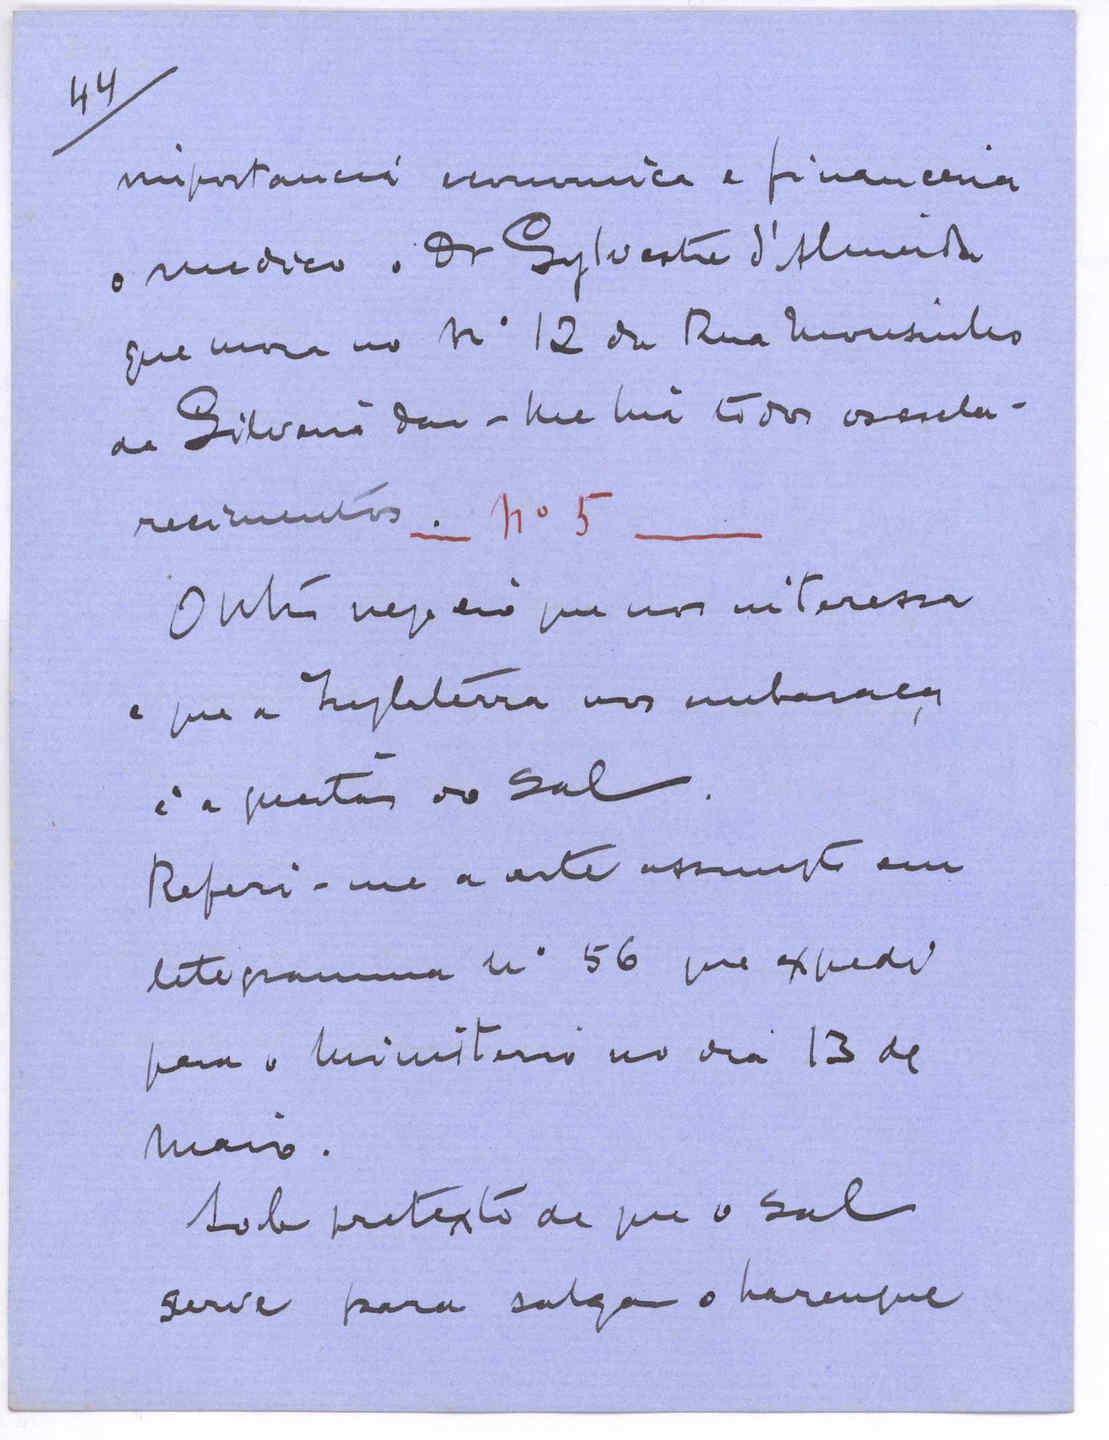 44
importancia economica e financeira
o medico o Dr Sylvestre d'Almeida
que mora no Nº 12 da Rua Mousinho
da Silveira dar-lhe-há todos os escla-
recimentos. Nº 5
Outro negocio que nos interessa
e que a Inglaterra nos embaraça
é a questão do Sal.
Referi-me a este assumpto em
telegramma Nº 56 que expedi
para o Ministerio no dia 13 de
Maio.
Sob pretexto de que o Sal
serve para salgar o harenque